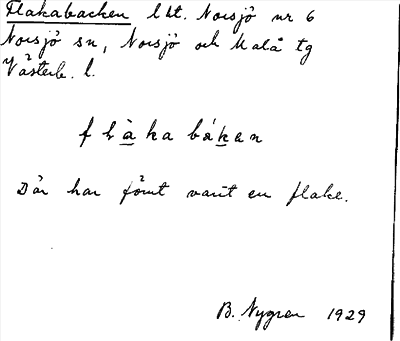 Flakabacken lht. Norsjö nr 6
Norsjö sn, Norsjö och Malå tg
Västerb. l.
flàkabáken
Där har förut varit en flake.
B. Nygren 1929